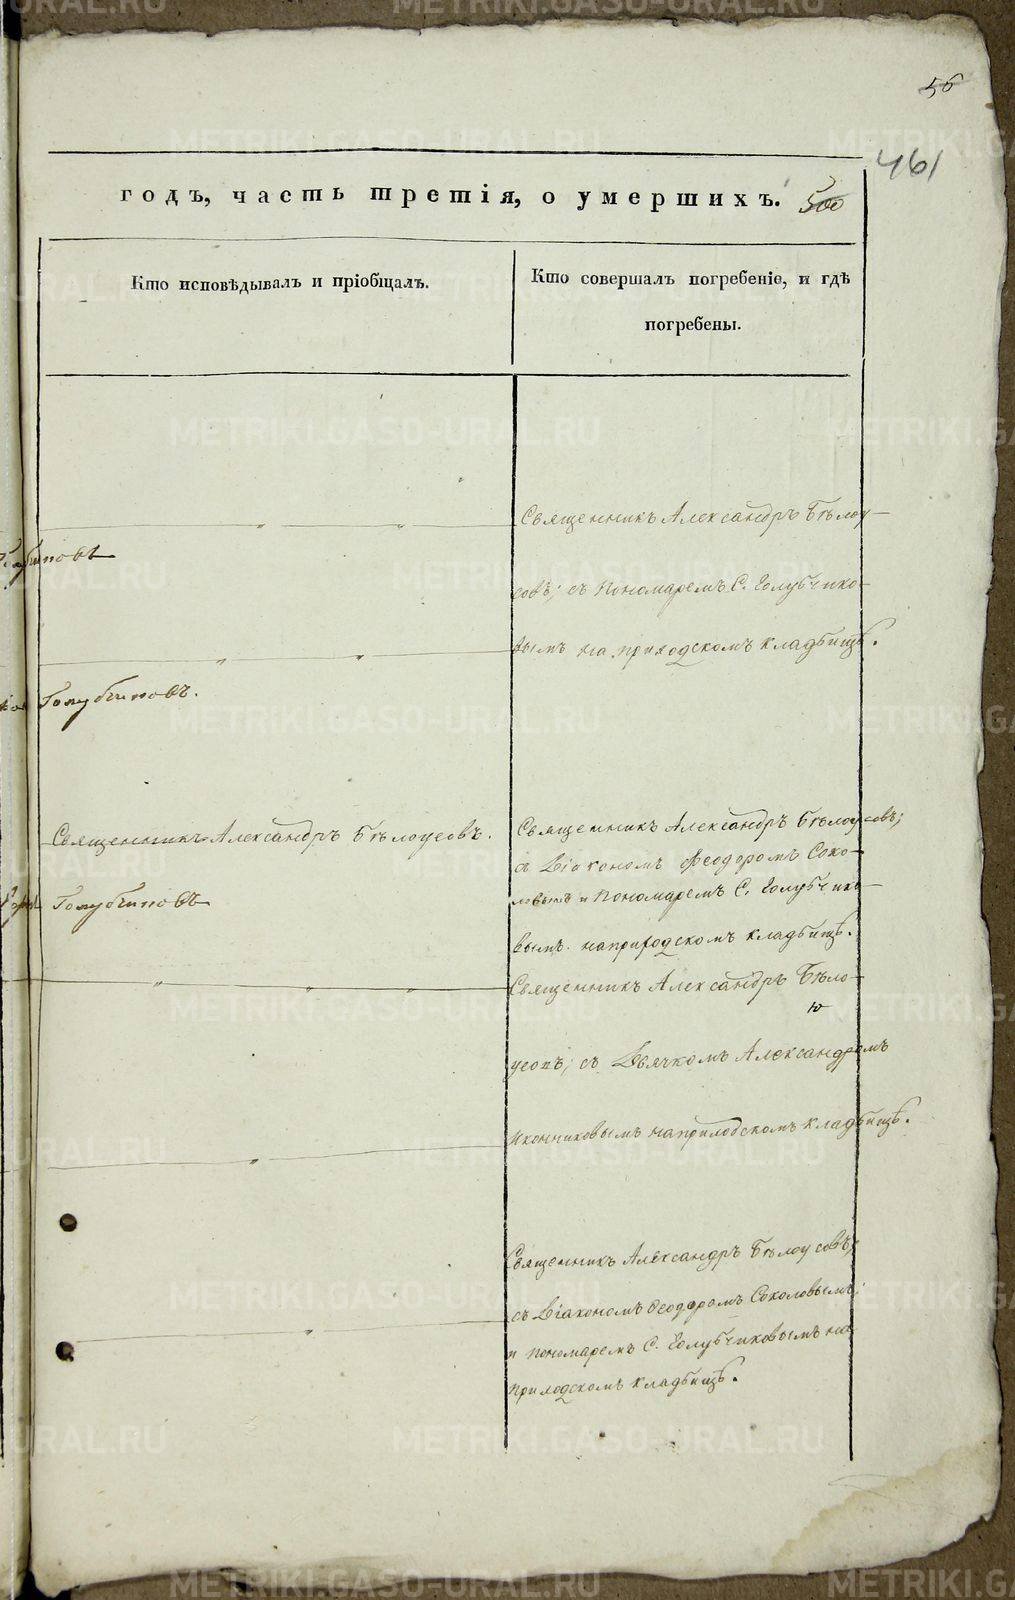 56
461
годъ, часть третія, о умершихъ. 500
Кто исповѣдывалъ и пріобщалъ.
Кто совершалъ погребеніе, и гдѣ
погребены.
Священникъ Александръ Бѣлоу-
совъ; съ Пономаремъ С. Голубчико-
вымъ на приходскомъ кладбищѣ.
Голубчиковъ.
Священникъ Александръ Бѣлоусовъ.
Голубчиковъ
Священникъ Александръ Бѣлоусовъ;
съ Діакономъ Феодоромъ Соко-
ловымъ и Пономаремъ С. Голубчико-
вымъ на приходскомъ кладбищѣ.
Священникъ Александръ Бѣло-
ю
усовъ; съ Дьячкомъ Александромъ
Иконниковымъ на приходскомъ кладбищѣ.
Священникъ Александръ Бѣлоусовъ;
съ Діакономъ Феодоромъ Соколовымъ;
и пономаремъ С. Голубчиковымъ на
приходскомъ кладбищѣ.
METRIKI.GASO-URAL.RU